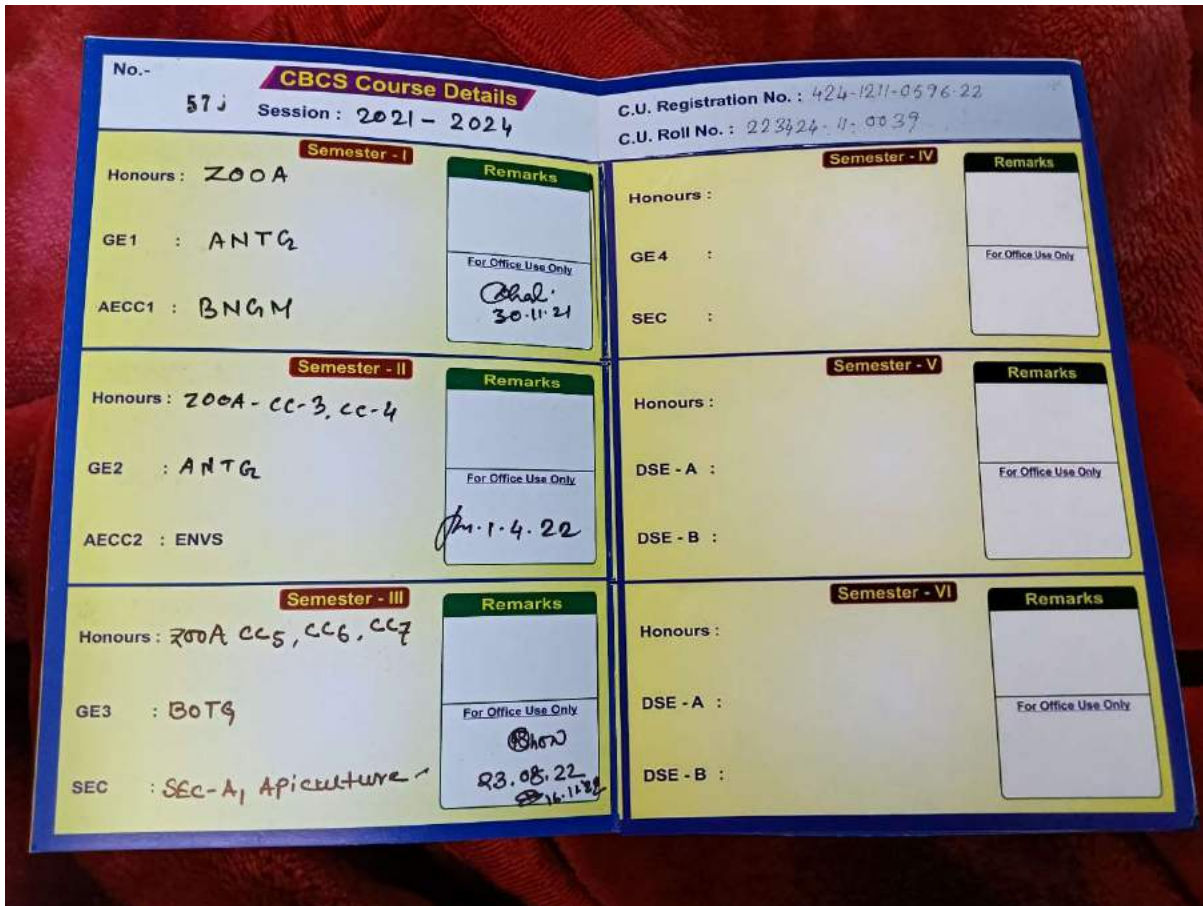 No.-
57j
CBCS Course Details
Session : 2021 - 2024
Semester - I
Honours : ZOOA
GE1 : ANTG
AECC1 : BNGM
Remarks
For Office Use Only
30.11.21
Semester - II
Honours : ZOOA - CC-3, CC-4
GE2 : ANTG
AECC2 : ENVS
Remarks
For Office Use Only
1.4.22
Semester - III
Honours : ZOOA CC5, CC6, CC7
GE3 : BOTG
SEC : SEC-A, Apiculture
Remarks
For Office Use Only
23.08.22
C.U. Registration No. : 424-1211-0596-22
C.U. Roll No. : 223424-11-0039
Semester - IV
Honours :
GE4 :
SEC :
Remarks
For Office Use Only
Semester - V
Honours :
DSE - A :
DSE - B :
Remarks
For Office Use Only
Semester - VI
Honours :
DSE - A :
DSE - B :
Remarks
For Office Use Only